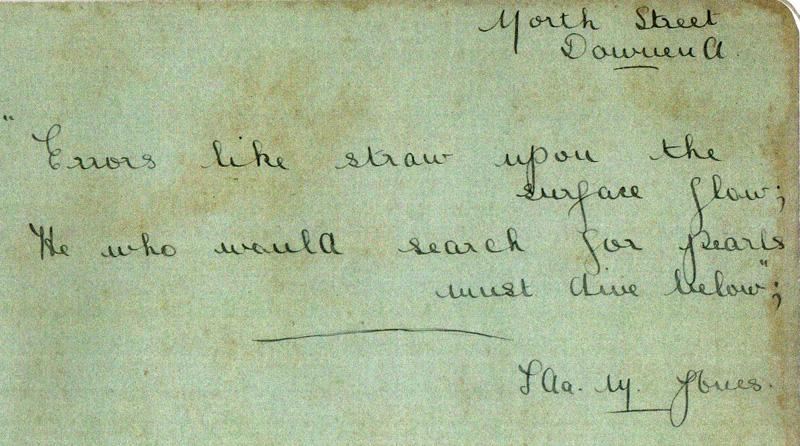 North Street
Downend.
"Errors like straw upon the
surface flow;
He who would search for pearls
must dive below";
Ida. M. Jones.